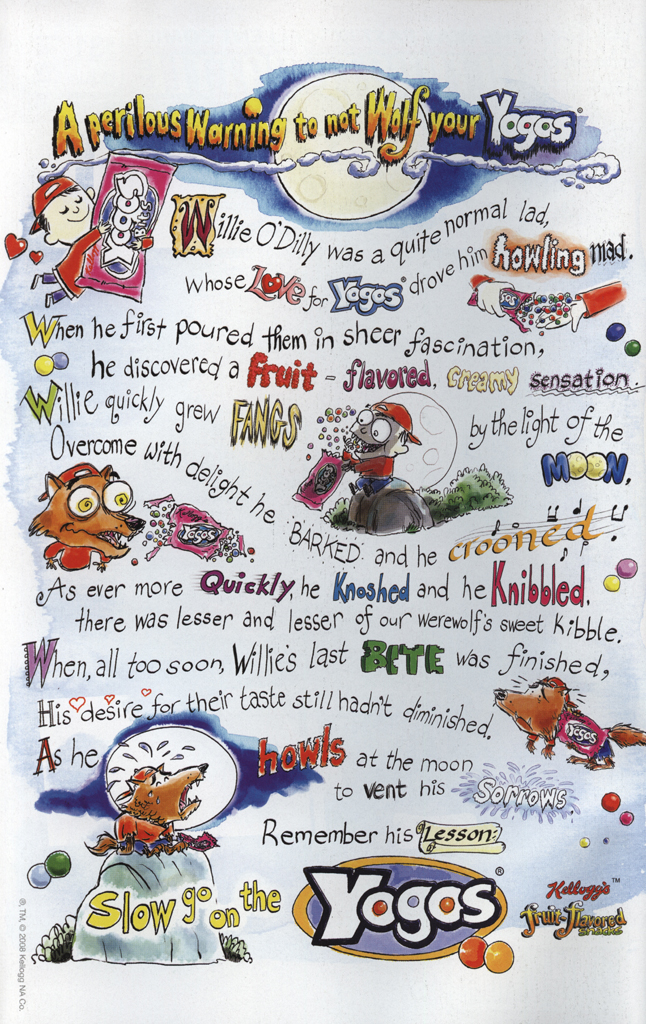 A perilous Warning to not Wolf your Yogos®
Willie O'Dilly was a quite normal lad,
whose Love for Yogos® drove him howling mad.
When he first poured them in sheer fascination,
he discovered a fruit-flavored, creamy sensation.
Willie quickly grew FANGS by the light of the MOON,
Overcome with delight he BARKED and he crooned.
As ever more Quickly, he Knoshed and he Knibbled,
there was lesser and lesser of our werewolf's sweet Kibble.
When, all too soon, Willie's last BITE was finished,
His desire for their taste still hadn't diminished.
As he howls at the moon
to vent his Sorrows,
Remember his Lesson:
Slow go on the
Yogos®
Kellogg's™
fruit flavored
snacks
Yogos
BITES
Yogos
Yogos
Yogos
Yogos
®, TM, © 2008 Kellogg NA Co.